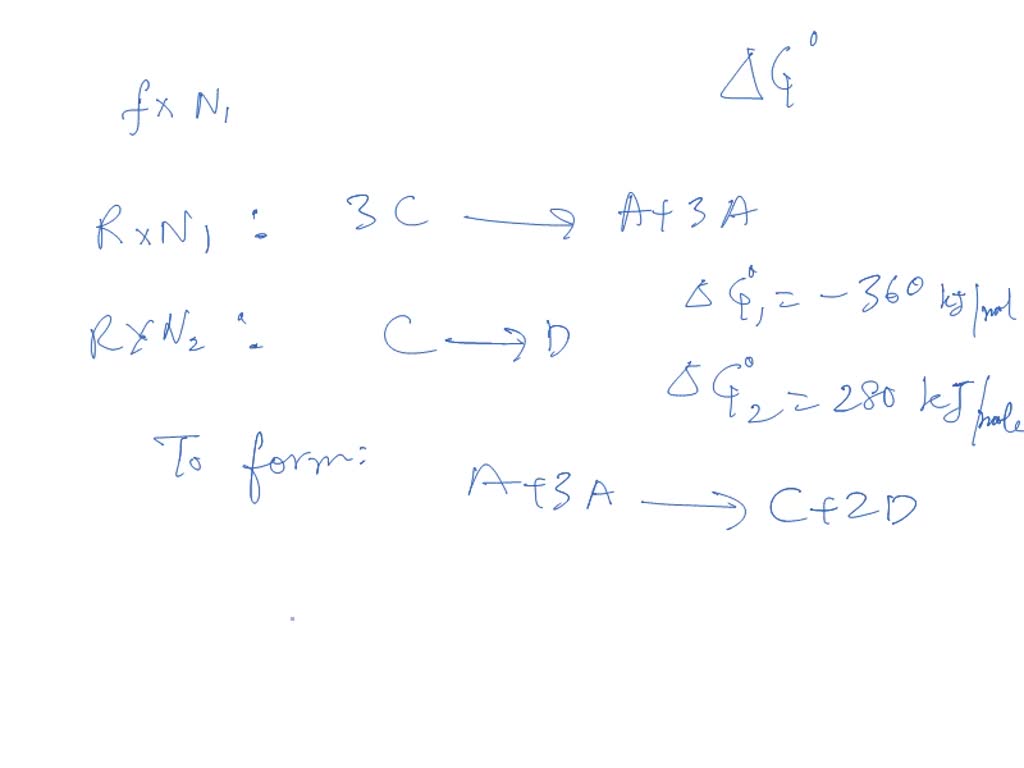 ΔG°
fxN₁
RxN₁ : 3C → A+3A
ΔG°₁ = -360 kJ/mol
RxN₂ : C → D
ΔG°₂ = 280 kJ/mole
To form:
A+3A → C+2D